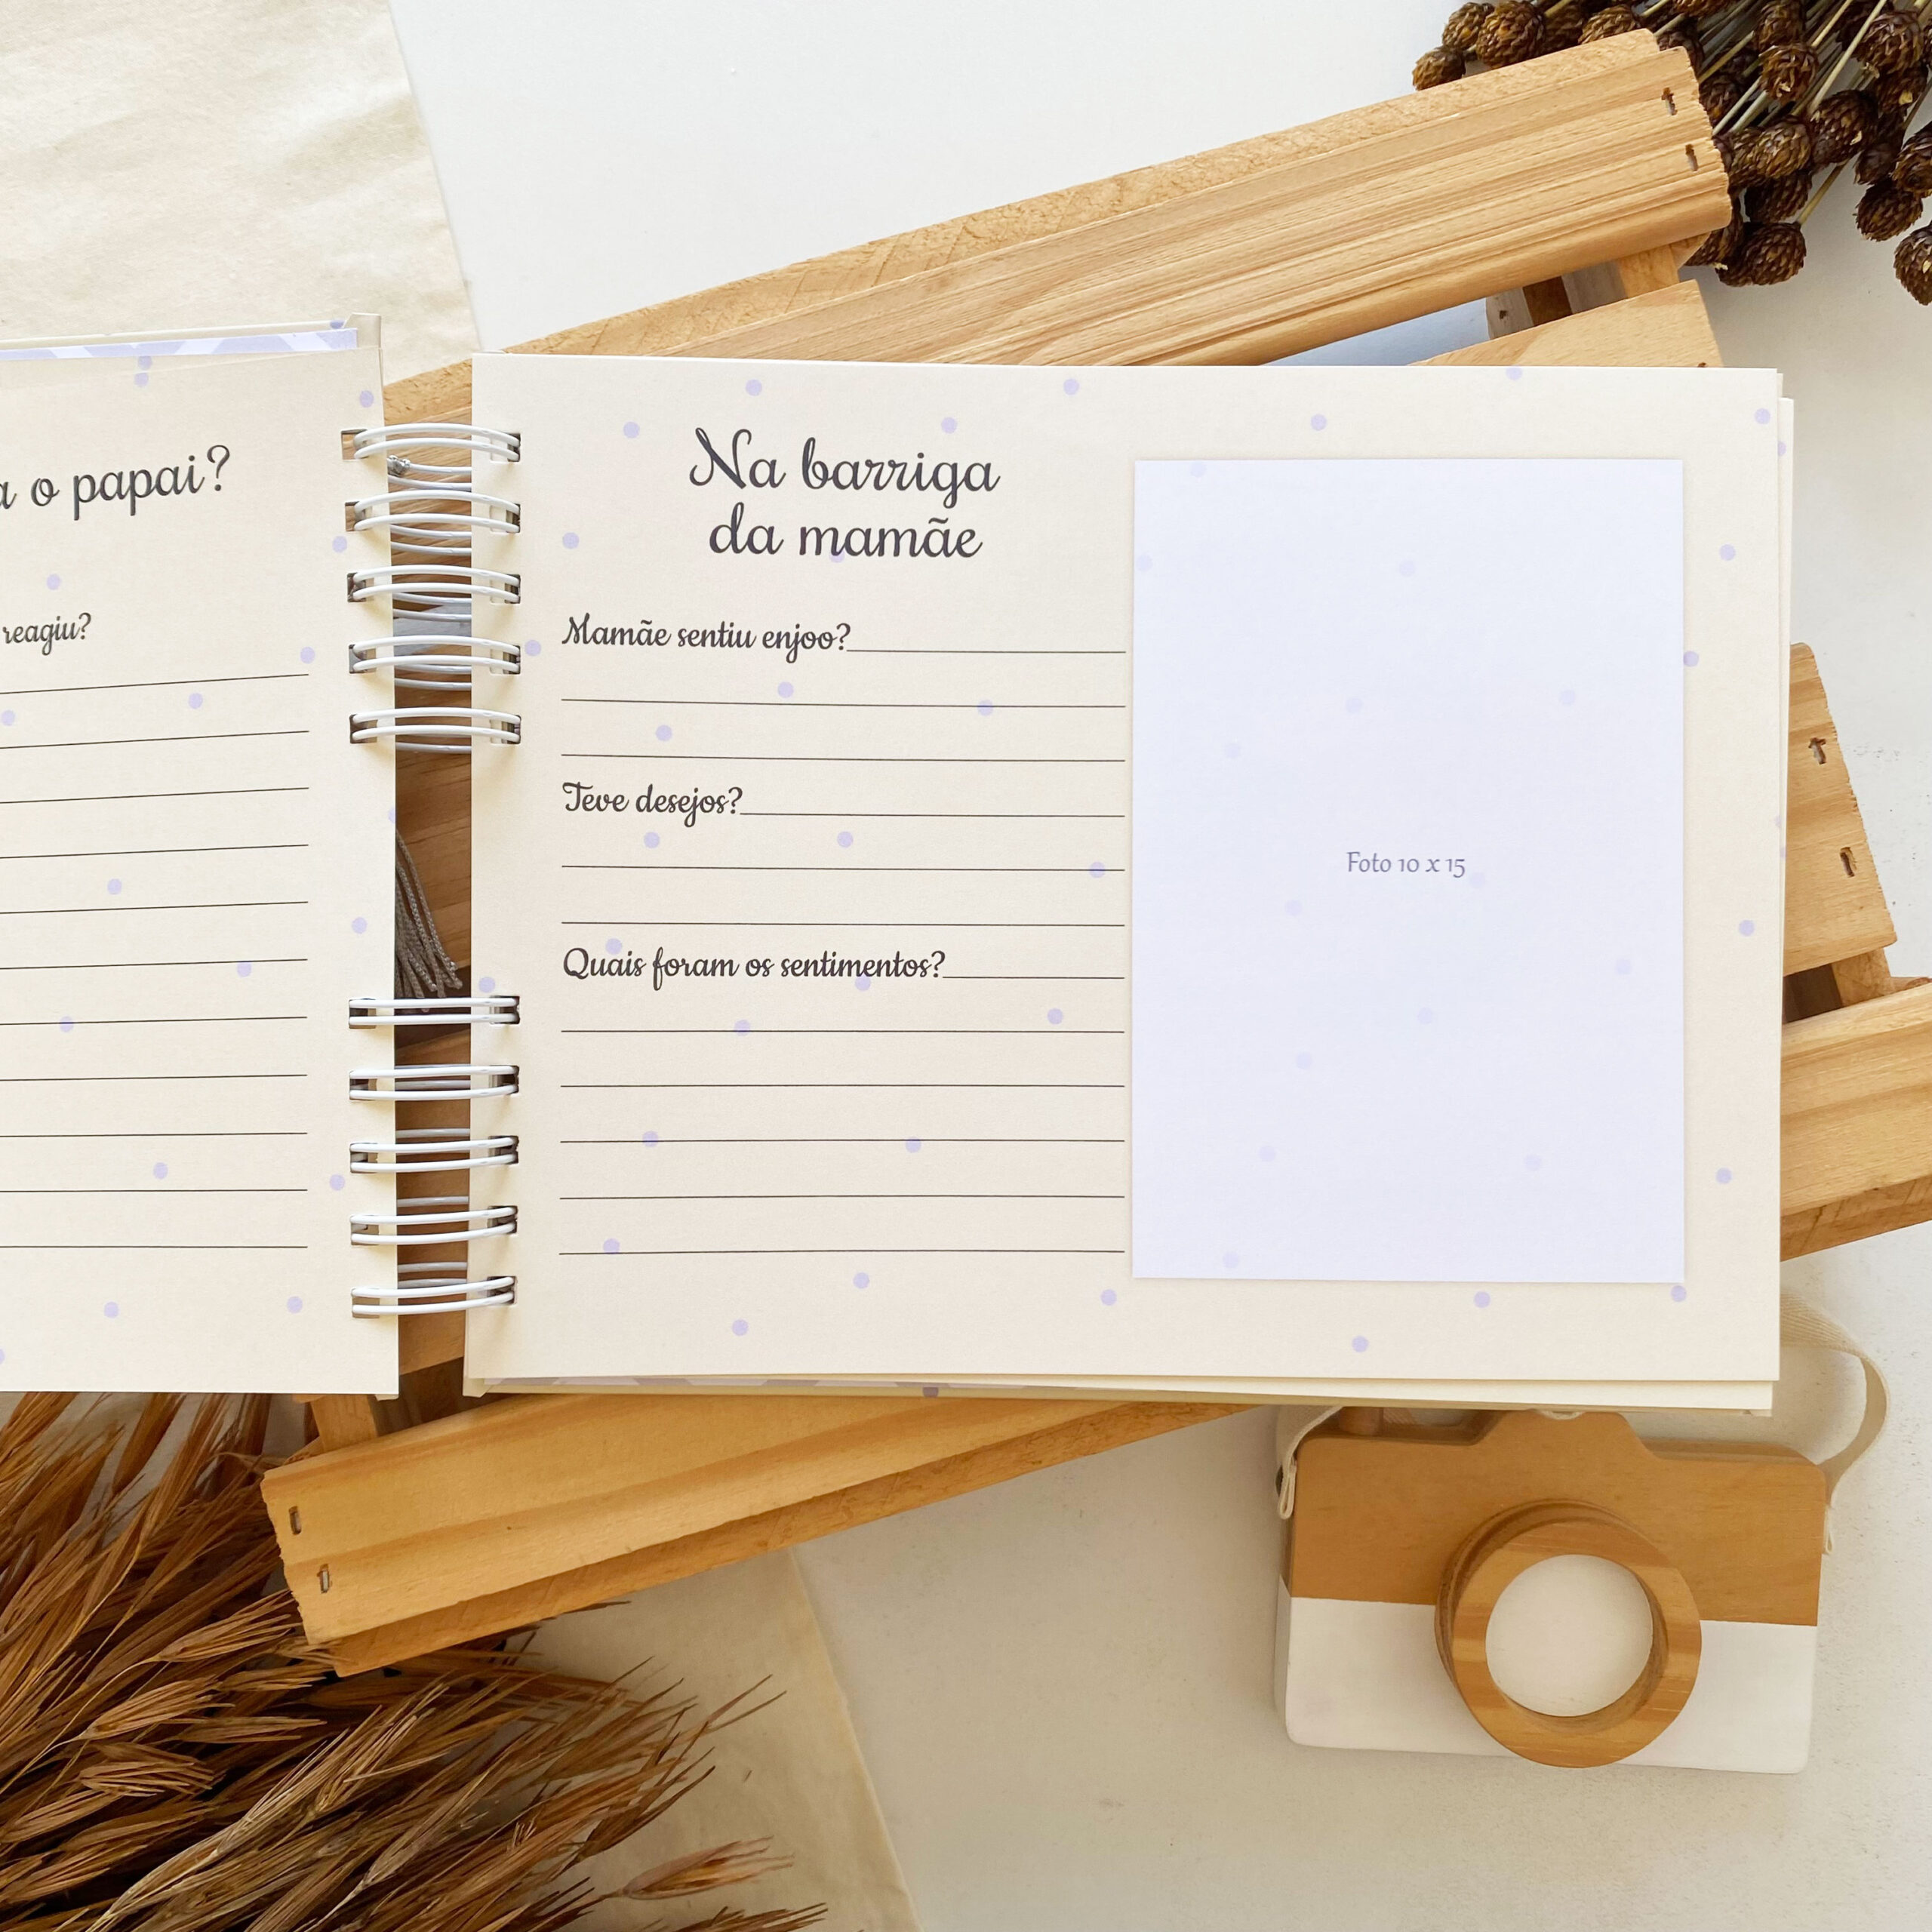 o papai?
reagiu?
Na barriga
da mamãe
Mamãe sentiu enjoo?
Teve desejos?
Quais foram os sentimentos?
Foto 10 x 15